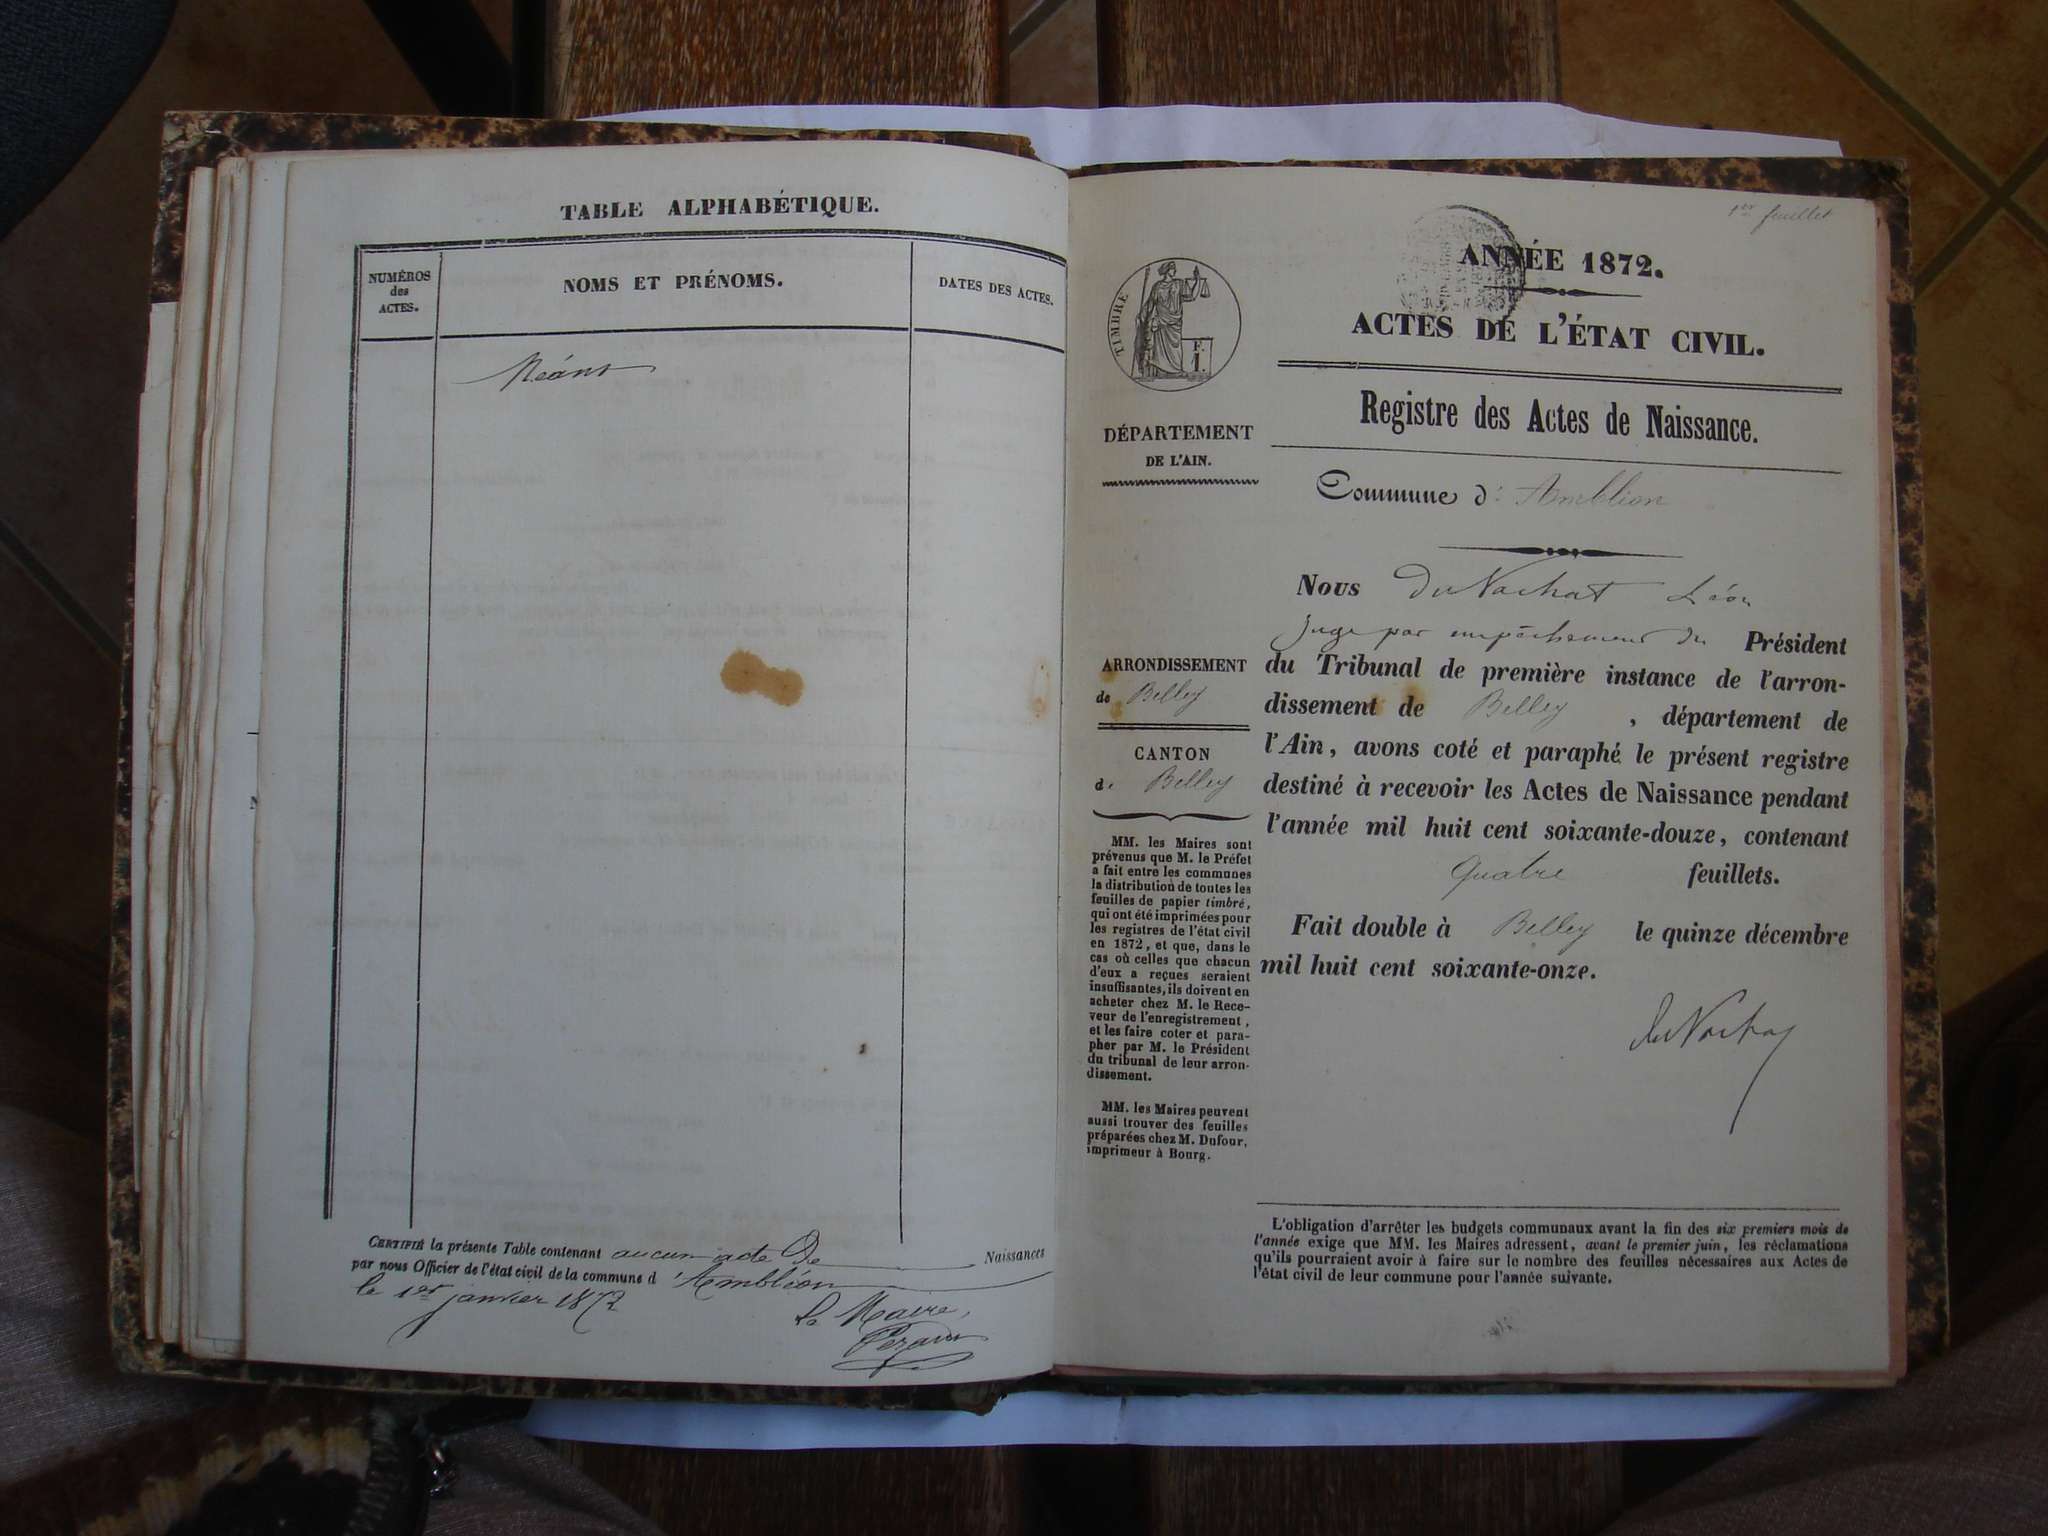 TABLE ALPHABÉTIQUE.
NUMÉROS
des
ACTES.
NOMS ET PRÉNOMS.
DATES DES ACTES.
Néant
CERTIFIÉ la présente Table contenant aucun acte De Naissances
par nous Officier de l'état civil de la commune d'Ambléon
le 1er janvier 1872
Le Maire,
1er feuillet
ANNÉE 1872.
ACTES DE L'ÉTAT CIVIL.
Registre des Actes de Naissance.
TIMBRE
F.
1.
DÉPARTEMENT
DE L'AIN.
Commune d'Ambléon
ARRONDISSEMENT
de Belley
CANTON
de Belley
MM. les Maires sont
prévenus que M. le Préfet
a fait entre les communes
la distribution de toutes les
feuilles de papier timbré,
qui ont été imprimées pour
les registres de l'état civil
en 1872, et que, dans le
cas où celles que chacun
d'eux a reçues seraient
insuffisantes, ils doivent en
acheter chez M. le Rece-
veur de l'enregistrement,
et les faire coter et para-
pher par M. le Président
du tribunal de leur arron-
dissement.
MM. les Maires peuvent
aussi trouver des feuilles
préparées chez M. Dufour,
imprimeur à Bourg.
Nous du Nachat Léon
juge par empêchement du Président
du Tribunal de première instance de l'arron-
dissement de Belley, département de
l'Ain, avons coté et paraphé le présent registre
destiné à recevoir les Actes de Naissance pendant
l'année mil huit cent soixante-douze, contenant
quatre feuillets.
Fait double à Belley le quinze décembre
mil huit cent soixante-onze.
du Nachat
L'obligation d'arrêter les budgets communaux avant la fin des six premiers mois de
l'année exige que MM. les Maires adressent, avant le premier juin, les réclamations
qu'ils pourraient avoir à faire sur le nombre des feuilles nécessaires aux Actes de
l'état civil de leur commune pour l'année suivante.